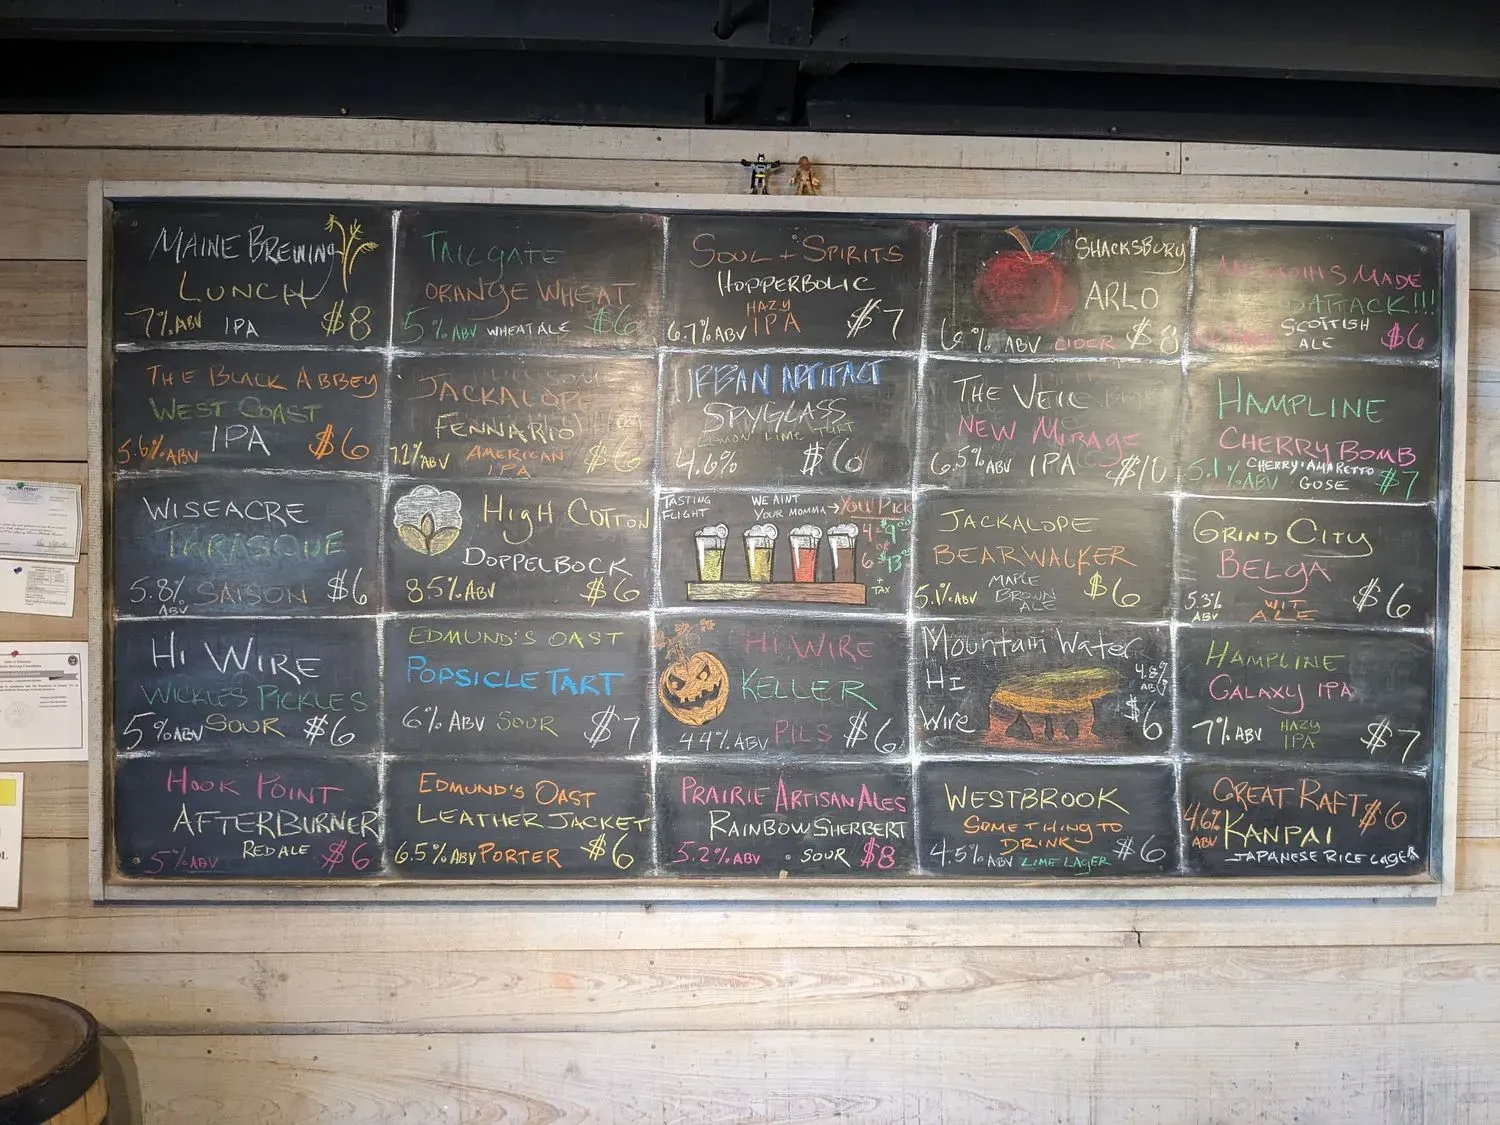 MAINE BREWING
LUNCH
7% ABV IPA $8
TAILGATE
ORANGE WHEAT
5% ABV WHEAT ALE $6
SOUL + SPIRITS
HOPPERBOLIC
HAZY
6.7% ABV IPA $7
SHACKSBURY
ARLO
6.% ABV CIDER $8
MEMPHIS MADE
ATTACK!!!
SCOTTISH
ALE $6
THE BLACK ABBEY
WEST COAST
5.6% ABV IPA $6
JACKALOPE
FENNARIO
7.2% ABV AMERICAN
IPA $6
URBAN ARTIFACT
SPYGLASS
LEMON LIME TART
4.6% $6
THE VEIL
NEW MIRAGE
6.5% ABV IPA $10
HAMPLINE
CHERRY BOMB
5.1% ABV CHERRY·AMARETTO
GOSE $7
WISEACRE
TARASQUE
5.8% ABV SAISON $6
HIGH COTTON
DOPPELBOCK
8.5% ABV $6
TASTING
FLIGHT
WE AINT
YOUR MOMMA → YOU PICK
4 - $9.00
OR
6 - $13.00
+
TAX
JACKALOPE
BEARWALKER
5.1% ABV MAPLE
BROWN
ALE $6
GRIND CITY
BELGA
5.3%
ABV WIT
ALE $6
HI WIRE
WICKLES PICKLES
5% ABV SOUR $6
EDMUND'S OAST
POPSICLE TART
6% ABV SOUR $7
HI WIRE
KELLER
4.4% ABV PILS $6
Mountain Water
HI
Wire
4.8%
ABV
$6
HAMPLINE
GALAXY IPA
7% ABV HAZY
IPA $7
HOOK POINT
AFTERBURNER
RED ALE
5% ABV $6
EDMUND'S OAST
LEATHER JACKET
6.5% ABV PORTER $6
PRAIRIE ARTISAN ALES
RAINBOW SHERBERT
5.2% ABV · SOUR $8
WESTBROOK
SOMETHING TO
DRINK
4.5% ABV LIME LAGER $6
GREAT RAFT $6
4.6%
ABV KANPAI
JAPANESE RICE LAGER